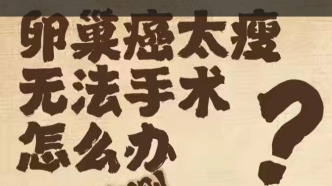 卵巢癌太瘦
无法手术
怎么办
?